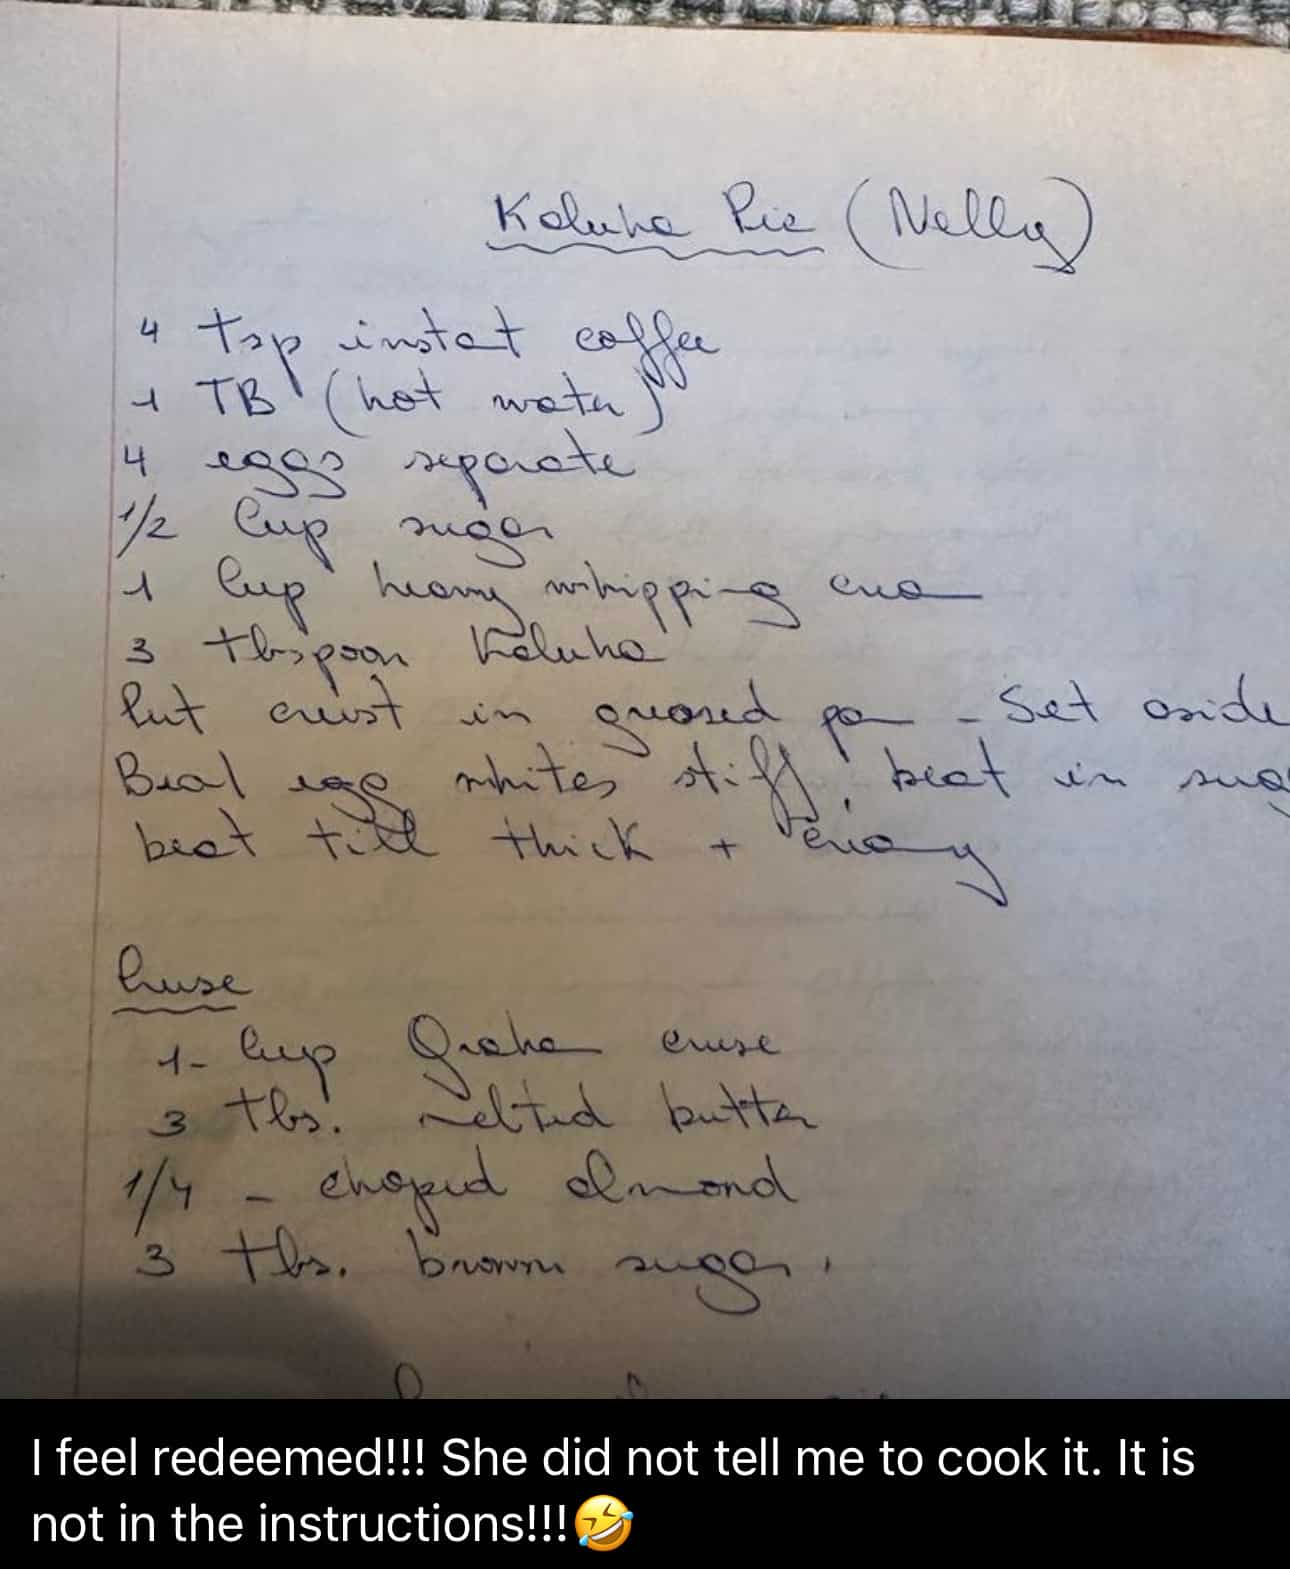 Kaluha Pie (Nelly)
4 tsp instat coffee
1 TB (hot water)
4 eggs separate
1/2 Cup sugar
1 Cup heavy whipping crea
3 tbspoon Kaluha
Put crust in greased pa - Set aside
Beat egg whites stiff, beat in sug
beat till thick + creamy
Cruse
1- Cup Graha cruse
3 tbs. melted butter
1/4 - choped almond
3 tbs. brown sugar.
I feel redeemed!!! She did not tell me to cook it. It is
not in the instructions!!!🤣